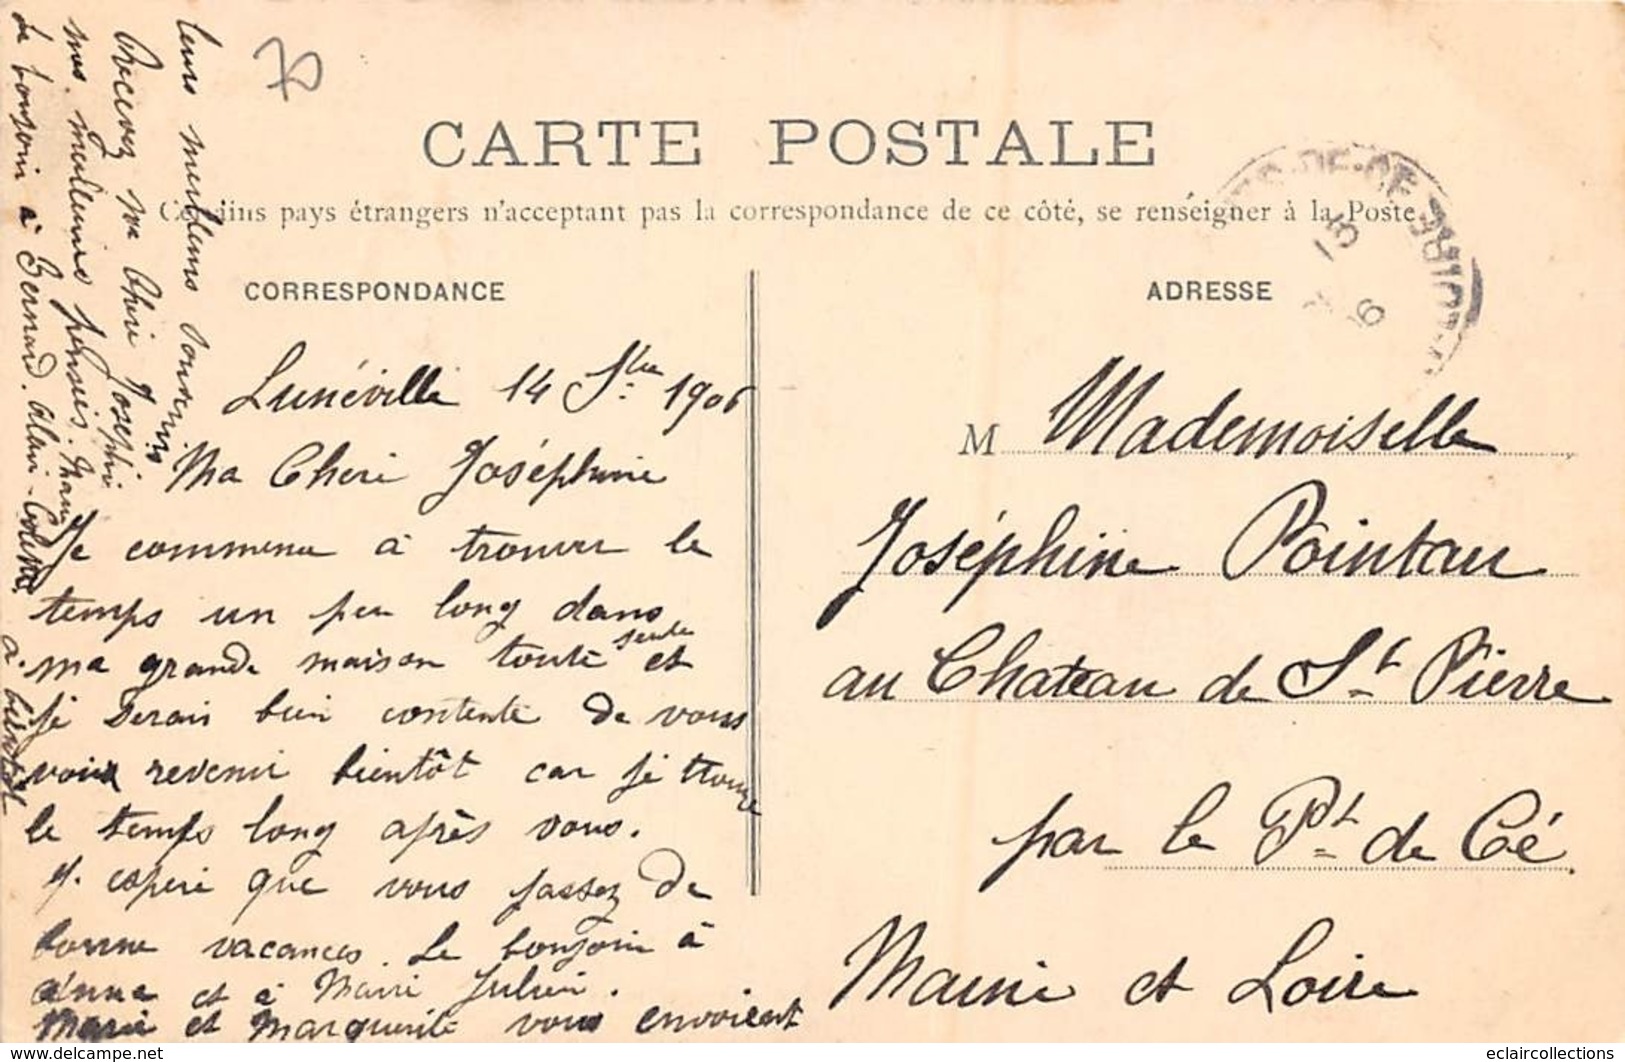 CARTE POSTALE
Certains pays étrangers n'acceptant pas la correspondance de ce côté, se renseigner à la Poste
CORRESPONDANCE
Lunéville 14 Sbre 1906
Ma Cheri Joséphine
Je commence à trouver le
temps un peu long dans
ma grande maison toute seule et
je serais bien contente de vous
voir revenir bientôt car je trouve
le temps long après vous.
J. espère que vous passez de
bonne vacances. Le bonjour à
Anna et à Marie Julien.
Marie et Marguerite vous envoient
leurs meilleurs souvenirs
Recevez ma Cheri Josephi
mes meilleures pensées. Marie
le bonjour à Bernard. Alain
a bientot
ADRESSE
M Mademoiselle
Joséphine Pointeau
au Chateau de St Pierre
par le Pt de Cé
Maine et Loire
15
06
eclaircollections